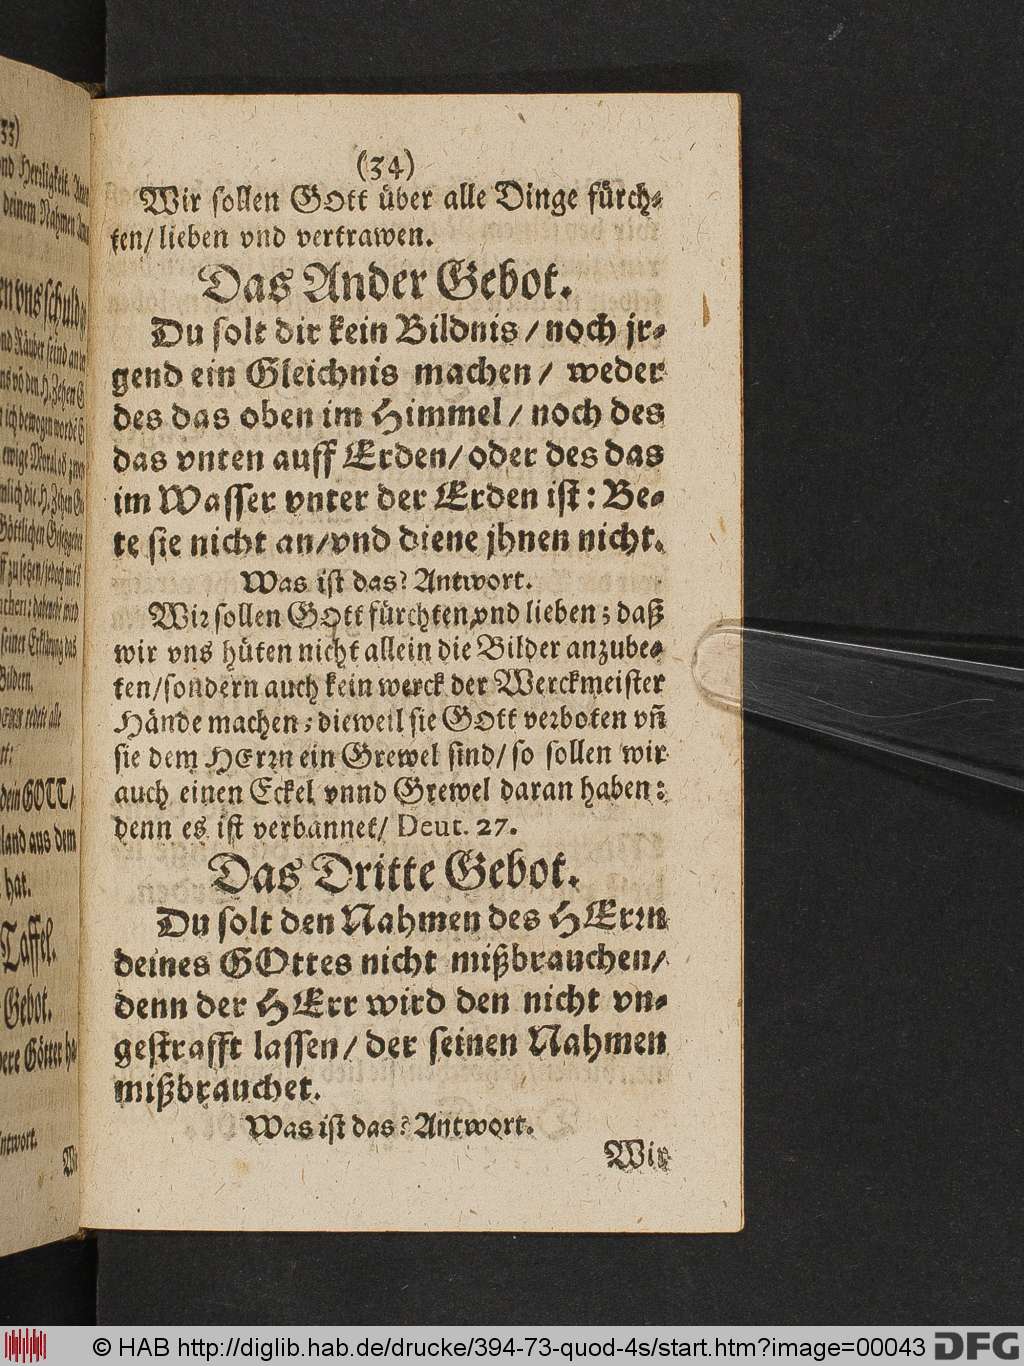 (34)
Wir sollen GOtt über alle Dinge fürch-
ten/ lieben vnd vertrawen.
Das Ander Gebot.
Du solt dir kein Bildnis / noch jr-
gend ein Gleichnis machen / weder
des das oben im Himmel / noch des
das vnten auff Erden / oder des das
im Wasser vnter der Erden ist: Be-
te sie nicht an/vnd diene jhnen nicht.
Was ist das? Antwort.
Wir sollen GOtt fürchten vnd lieben; daß
wir vns hüten nicht allein die Bilder anzube-
ten/sondern auch kein werck der Werckmeister
Hände machen; dieweil sie GOtt verboten vñ
sie dem HErrn ein Grewel sind/ so sollen wir
auch einen Eckel vnnd Grewel daran haben:
denn es ist verbannet/ Deut. 27.
Das Dritte Gebot.
Du solt den Nahmen des HErrn
deines GOttes nicht mißbrauchen/
denn der HErr wird den nicht vn-
gestrafft lassen/ der seinen Nahmen
mißbrauchet.
Was ist das? Antwort.
Wir
33)
deinem Nahmen
vns schuld
Bildern.
dein GOTT/
land aus dem
hat.
Taffel.
Gebot.
Götter ha-
© HAB http://diglib.hab.de/drucke/394-73-quod-4s/start.htm?image=00043
DFG